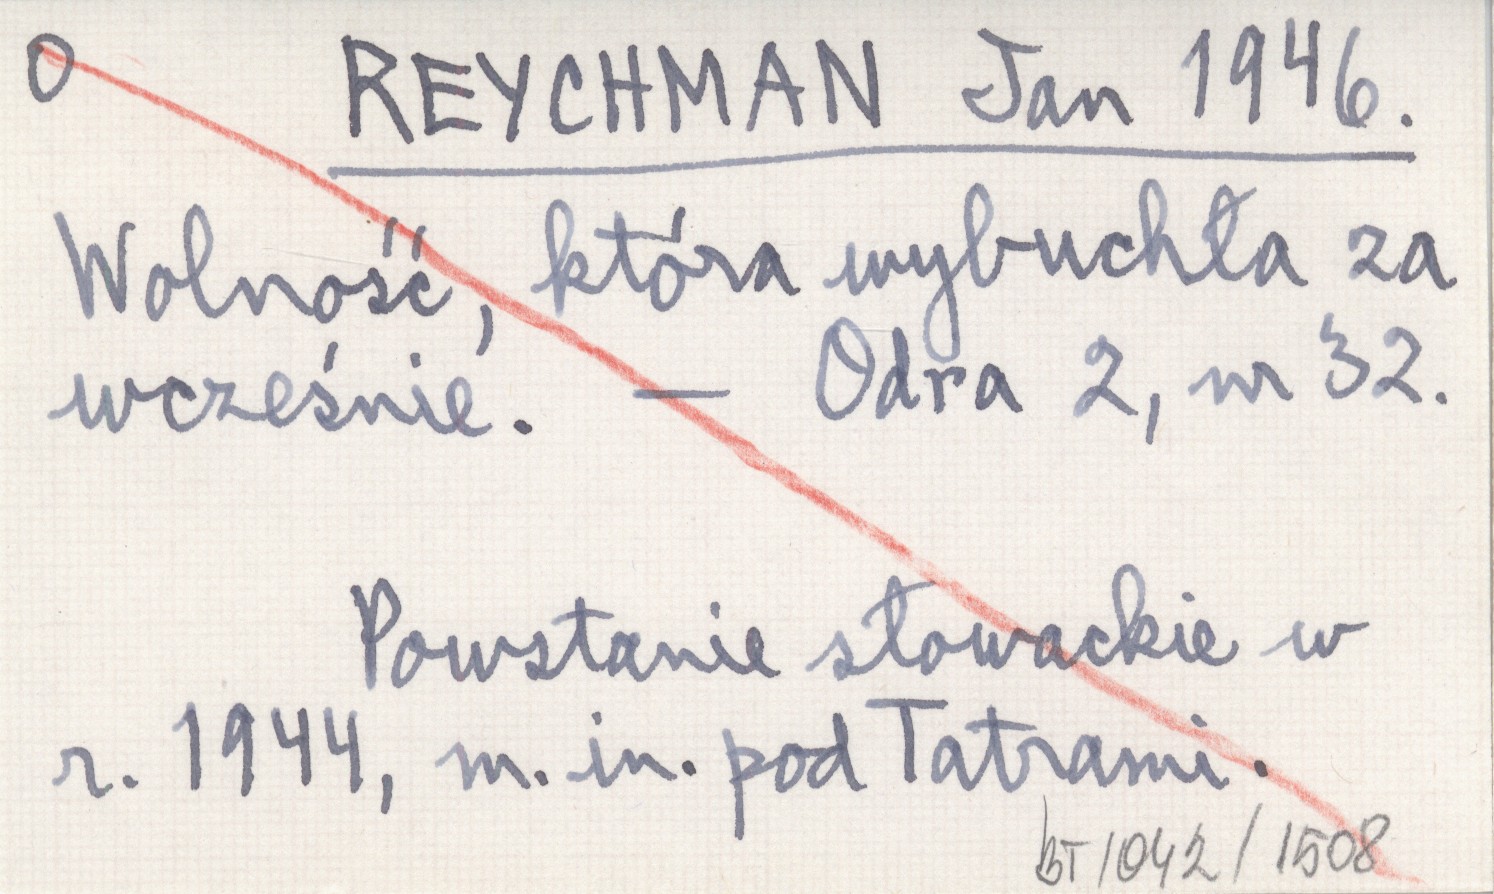 O REYCHMAN Jan 1946.
Wolność, która wybuchła za
wcześnie. — Odra 2, nr 32.
Powstanie słowackie w
r. 1944, m. in. pod Tatrami.
BT 1042 / 1508